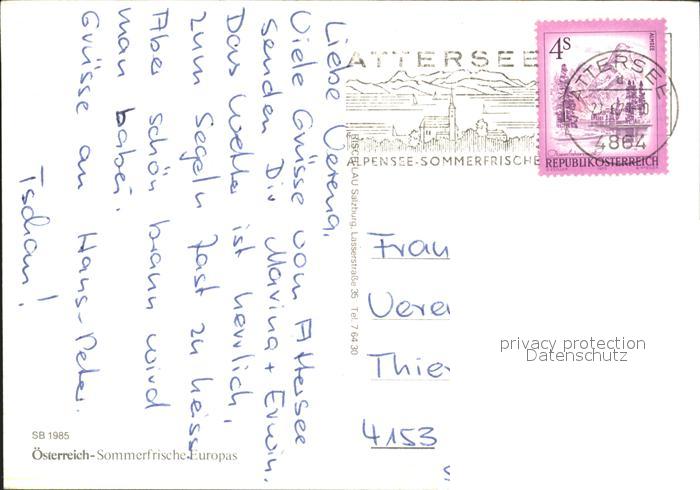 Liebe Verena,
Viele Grüsse vom Attersee
senden Dir Marina + Erwin.
Das Wetter ist herrlich,
zum Segeln fast zu heiss
Aber schön braun wird
man dabei.
Grüsse an Hans-Peter.
Tschau!
ATTERSEE
ALPENSEE-SOMMERFRISCHE
4S
ALMSEE
REPUBLIK ÖSTERREICH
ATTERSEE
4864
RISCHLAU Salzburg, Lasserstraße 35 Tel. 7 64 30
Frau
Vere
Thie
4153
privacy protection
Datenschutz
SB 1985
Österreich-Sommerfrische Europas